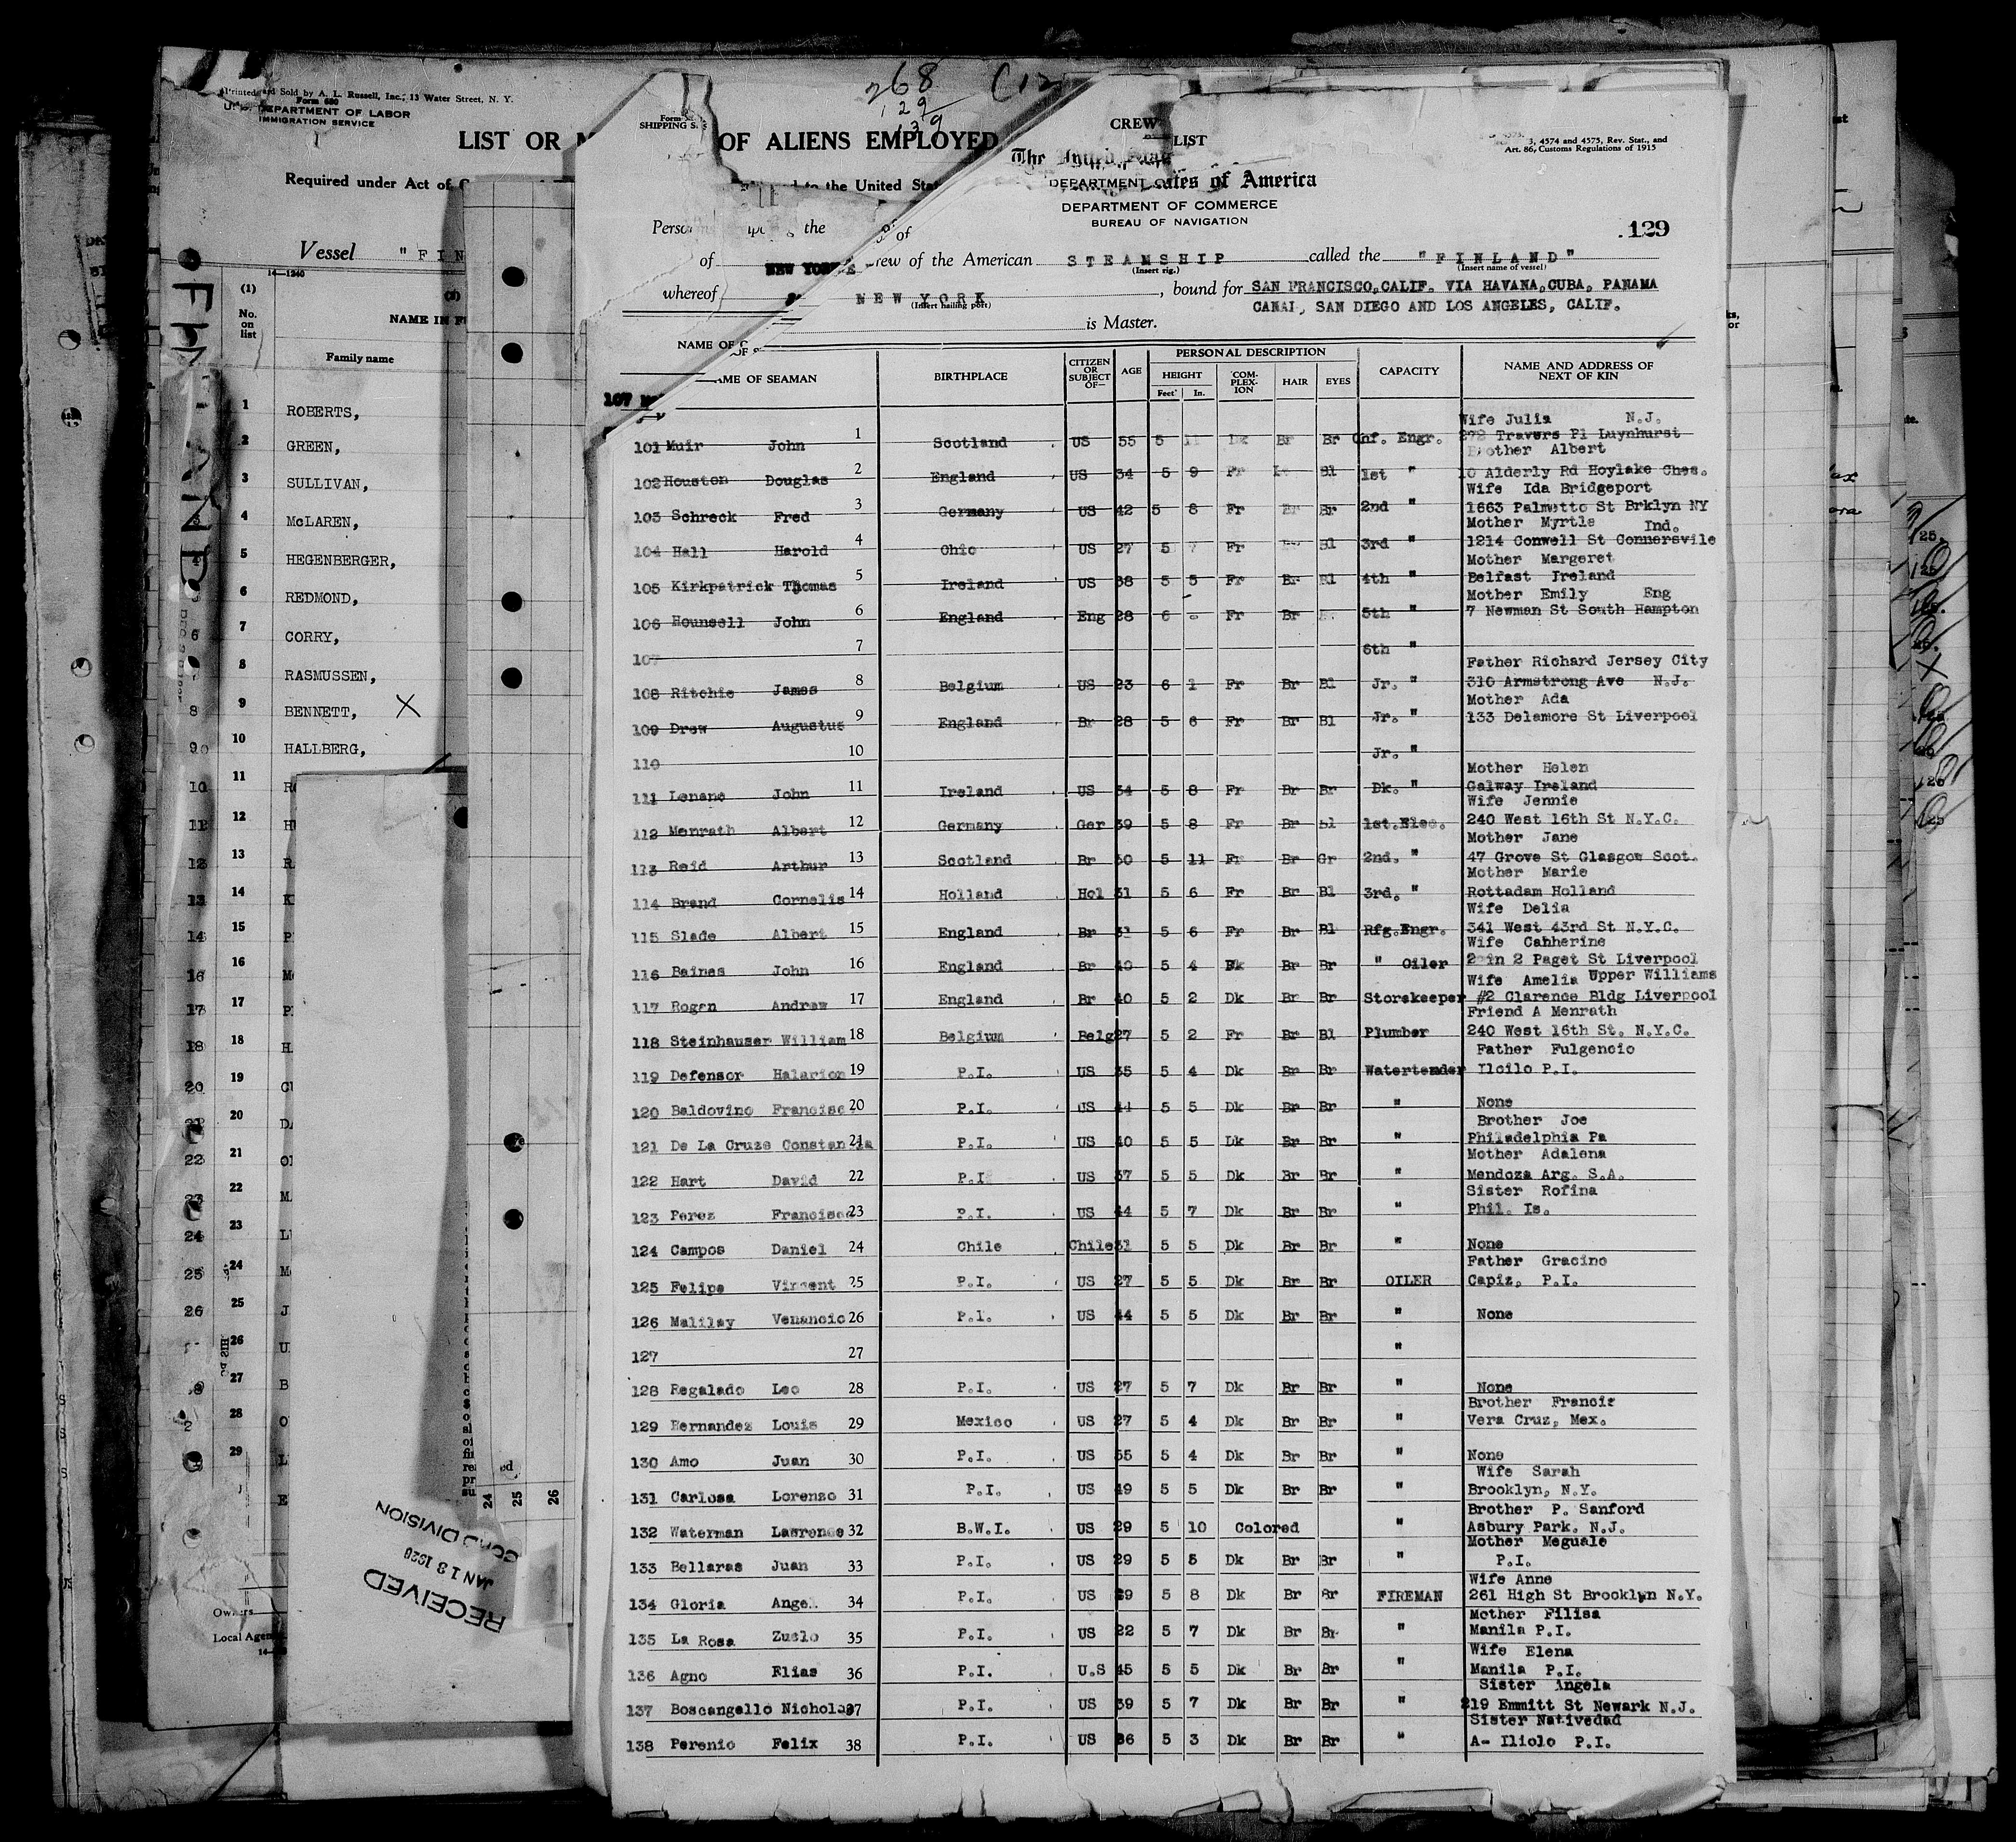 268 (12
129
139
Printed and Sold by A. L. Russell, Inc., 13 Water Street, N. Y.
Form 680
DEPARTMENT OF LABOR
IMMIGRATION SERVICE
LIST OR M OF ALIENS EMPLOYED
Required under Act of
to the United Stat
Vessel "FIN
14—1240
(1)
No.
on
list
NAME IN F
Family name
1 ROBERTS,
2 GREEN,
3 SULLIVAN,
4 McLAREN,
5 HEGENBERGER,
6 REDMOND,
7 CORRY,
8 RASMUSSEN,
9 BENNETT, X
10 HALLBERG,
11
12
13
14
15
16
17
18
19
20
21
22
23
24
25
26
27
28
29
Owners
Local Agen
24 25 26
RECEIVED
JAN 13 1926
DIVISION
Form
SHIPPING S
CREW
LIST
3, 4574 and 4575, Rev. Stat., and
Art. 86, Customs Regulations of 1915
The United States of America
DEPARTMENT
DEPARTMENT OF COMMERCE
BUREAU OF NAVIGATION
129
the of
of NEW YORK crew of the American STEAMSHIP called the "FINLAND"
(Insert rig.) (Insert name of vessel)
whereof NEW YORK, bound for SAN FRANCISCO, CALIF. VIA HAVANA, CUBA, PANAMA
(Insert sailing port)
CANAL, SAN DIEGO AND LOS ANGELES, CALIF.
is Master.
NAME OF SEAMAN BIRTHPLACE CITIZEN OR SUBJECT OF— AGE PERSONAL DESCRIPTION HEIGHT Feet In. COM-PLEX-ION HAIR EYES CAPACITY NAME AND ADDRESS OF NEXT OF KIN
107
Wife Julia N.J.
101 Muir John 1 Scotland US 55 5 11 Dk Br Br Chf. Engr. 272 Travers Pl Luynhurst
Brother Albert
102 Houston Douglas 2 England US 34 5 9 Fr Bl 1st " 10 Alderly Rd Hoylake Ches.
Wife Ida Bridgeport
103 Schreck Fred 3 Germany US 42 5 8 Fr Br Br 2nd " 1663 Palmetto St Brklyn NY
Mother Myrtle Ind.
104 Hall Harold 4 Ohio US 27 5 7 Fr Bl 3rd " 1214 Conwell St Connersvile
Mother Margeret
105 Kirkpatrick Thomas 5 Ireland US 38 5 5 Fr Br Bl 4th " Belfast Ireland
Mother Emily Eng
106 Hounsell John 6 England Eng 28 6 - Fr Br 5th " 7 Newman St South Hampton
107 7 6th "
Father Richard Jersey City
108 Ritchie James 8 Belgium US 23 6 1 Fr Br Bl Jr. " 310 Armstrong Ave N.J.
Mother Ada
109 Drew Augustus 9 England Br 28 5 6 Fr Br Bl Jr. " 133 Delamore St Liverpool
110 10 Jr. "
Mother Helen
111 Lenane John 11 Ireland US 34 5 8 Fr Br Br Dk. " Galway Ireland
Wife Jennie
112 Menrath Albert 12 Germany Ger 39 5 8 Fr Br Bl 1st.Elec. 240 West 16th St N.Y.C.
Mother Jane
113 Reid Arthur 13 Scotland Br 30 5 11 Fr Br Gr 2nd. " 47 Grove St Glasgow Scot.
Mother Marie
114 Brand Cornelis 14 Holland Hol 31 5 6 Fr Br Bl 3rd. " Rottadam Holland
Wife Delia
115 Slade Albert 15 England Br 31 5 6 Fr Br Bl Rfg.Engr. 341 West 43rd St N.Y.C.
Wife Cahherine
116 Baines John 16 England Br 40 5 4 Dk Br Br " Oiler 2 in 2 Paget St Liverpool
Wife Amelia Upper Williams
117 Rogan Andrew 17 England Br 40 5 2 Dk Br Br Storekeeper #2 Clarence Bldg Liverpool
Friend A Menrath
118 Steinhauser William 18 Belgium Belg 27 5 2 Fr Br Bl Plumber 240 West 16th St. N.Y.C.
Father Fulgencio
119 Defensor Halarion 19 P.I. US 35 5 4 Dk Br Br Watertender Iloilo P.I.
120 Baldovino Francisc 20 P.I. US 44 5 5 Dk Br Br " None
Brother Joe
121 De La Cruze Constancia 21 P.I. US 40 5 5 Dk Br Br " Philadelphia Pa
Mother Adalena
122 Hart David 22 P.I US 37 5 5 Dk Br Br " Mendoza Arg. S.A.
Sister Rofina
123 Perez Francisco 23 P.I. US 44 5 7 Dk Br Br " Phil. Is.
124 Campos Daniel 24 Chile Chile 31 5 5 Dk Br Br " None
Father Gracino
125 Felipe Vincent 25 P.I. US 27 5 5 Dk Br Br OILER Capiz, P.I.
126 Malilay Venancio 26 P.I. US 44 5 5 Dk Br Br " None
127 27 "
128 Regalado Leo 28 P.I. US 27 5 7 Dk Br Br " None
Brother Francis
129 Hernandez Louis 29 Mexico US 27 5 4 Dk Br Br " Vera Cruz, Mex.
130 Amo Juan 30 P.I. US 55 5 4 Dk Br Br " None
Wife Sarah
131 Carlosa Lorenzo 31 P.I. US 49 5 5 Dk Br Br " Brooklyn, N.Y.
Brother P. Sanford
132 Waterman Lawrence 32 B.W.I. US 29 5 10 Colored " Asbury Park. N.J.
Mother Meguale
133 Bellaras Juan 33 P.I. US 29 5 5 Dk Br Br " P.I.
Wife Anne
134 Gloria Angel 34 P.I. US 29 5 8 Dk Br Br FIREMAN 261 High St Brooklyn N.Y.
Mother Filisa
135 La Rosa Zuelo 35 P.I. US 22 5 7 Dk Br Br " Manila P.I.
Wife Elena
136 Agno Elias 36 P.I. U.S 45 5 5 Dk Br Br " Manila P.I.
Sister Angela
137 Boscangello Nicholas 37 P.I. US 39 5 7 Dk Br Br " 219 Emmitt St Newark N.J.
Sister Natividad
138 Perenio Felix 38 P.I. US 36 5 3 Dk Br Br " A- Iliolo P.I.